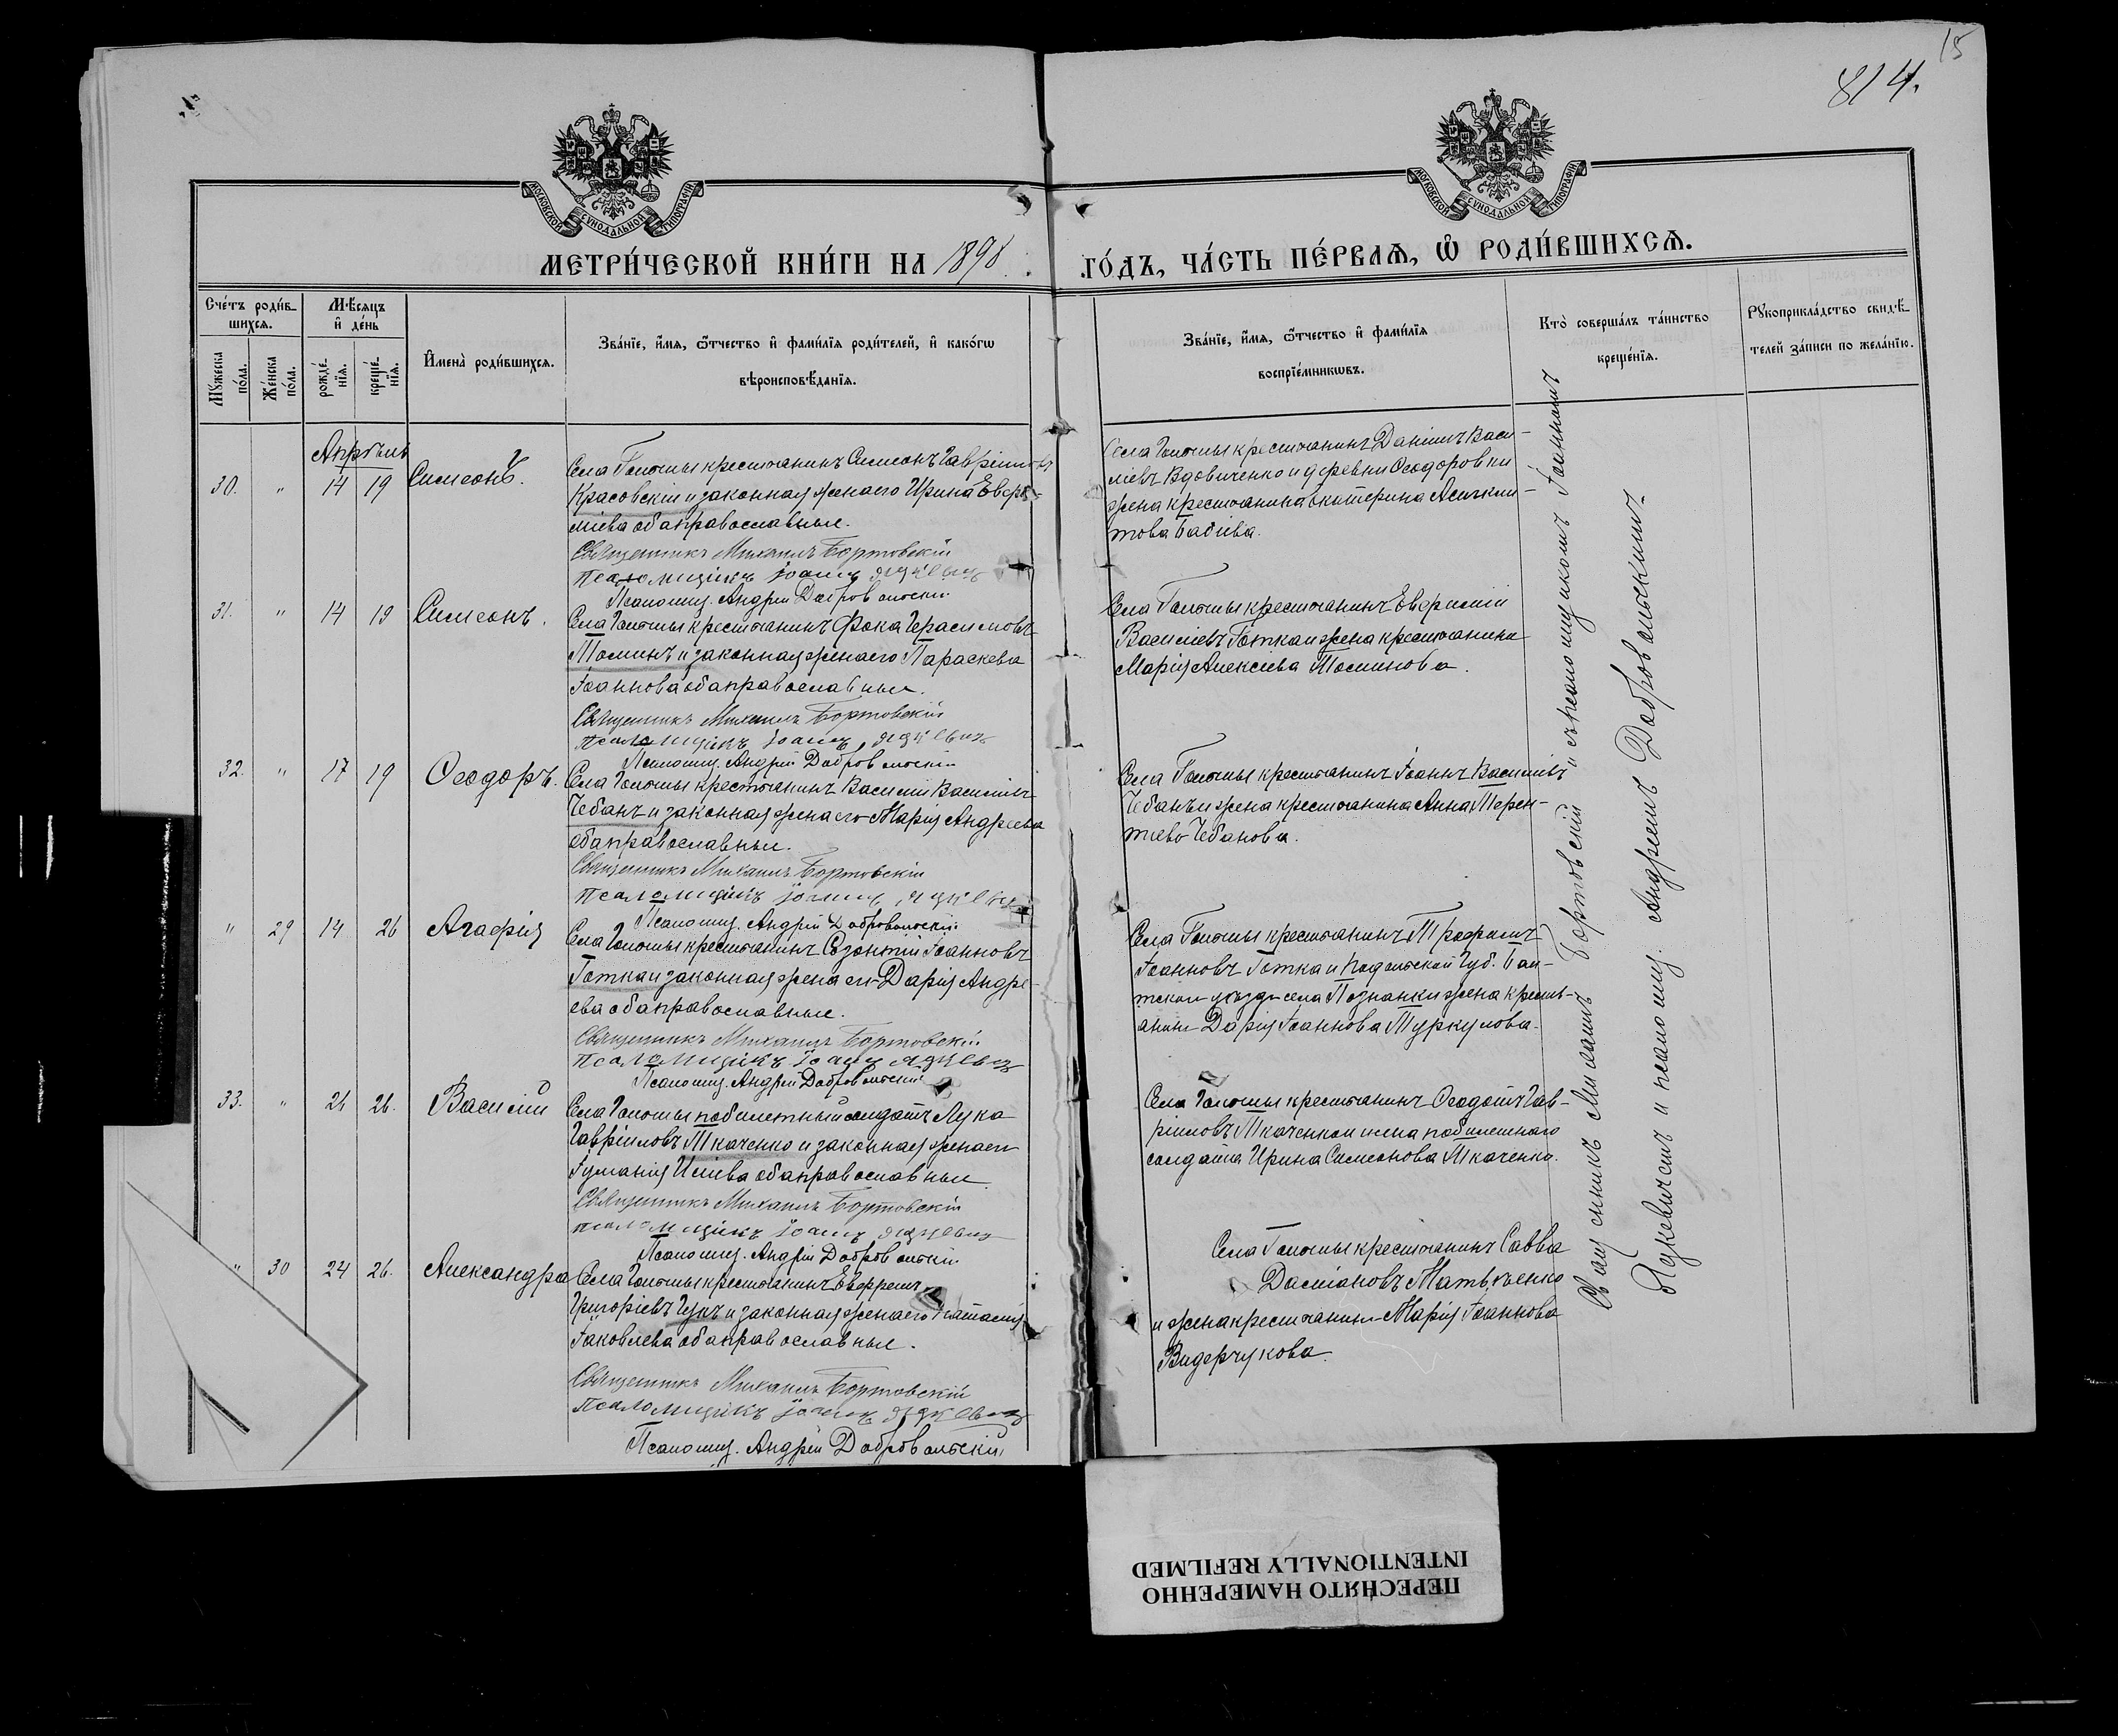 15
814.
МОСКОВСКОЙ СУНОДАЛЬНОЙ ТИПОГРАФІИ
МОСКОВСКОЙ СУНОДАЛЬНОЙ ТИПОГРАФІИ
МЕТРИ́ЧЕСКОЙ КНИ́ГИ НА 1898
ГО́ДЪ, ЧА́СТЬ ПЕ́РВАѦ, Ѡ҆ РОДИ́ВШИХСѦ.
Сче́тъ роди́в-
шихсѧ.
Мꙋжеска по́ла.
Же́нска по́ла.
Мѣ́сѧцъ и҆ де́нь
рожде́-нїѧ.
креще́-нїѧ.
И҆мена̀ роди́вшихсѧ.
Зва́нїе, и҆́мѧ, ѻ҆́тчество и҆ фами́лїѧ роди́телей, и҆ како́гѡ
вѣроисповѣ́данїѧ.
Зва́нїе, и҆́мѧ, ѻ҆́тчество и҆ фами́лїѧ
воспрїе́мникѡвъ.
Кто̀ соверша́лъ та́инство
креще́нїѧ.
Рꙋкоприкла́дство свидѣ́-
телей за́писи по жела́нїю.
Апрѣль
30. " 14 19 Симеонъ.
Села крестьянинъ Симеонъ Гавріиловъ
Красовскій и законная жена его Ирина Евфи-
міева оба православные.
Священникъ Михаилъ Бортовскій
Псаломщикъ Іоаннъ
Псаломщ. Андрей Добровольскій
Села крестьянинъ Даніилъ Васи-
ліевъ Вдовиченко и деревни Ѳеодоровки
жена крестьянина Екатерина
Бабіева.
31. " 14 19 Симеонъ.
Села крестьянинъ Фока Герасимовъ
Томинъ и законная жена его Параскева
Іоаннова оба православные.
Священникъ Михаилъ Бортовскій
Псаломщикъ Іоаннъ
Псаломщ. Андрей Добровольскій
Села крестьянинъ Евфимій
Василіевъ Готка и жена крестьянина
Марія Алексіева Томинова.
32. " 17 19 Ѳеодоръ.
Села крестьянинъ Василій Василіевъ
Чебанъ и законная жена его Марія Андреева
оба православные.
Священникъ Михаилъ Бортовскій
Псаломщикъ Іоаннъ
Псаломщ. Андрей Добровольскій
Села крестьянинъ Іоаннъ Василіевъ
Чебанъ и жена крестьянина Анна Терен-
тіева Чебанова.
" 29 14 26 Агафія
Села крестьянинъ Созонтій Іоанновъ
Готка и законная жена его Дарія Андре-
ева оба православные.
Священникъ Михаилъ Бортовскій
Псаломщикъ Іоаннъ
Псаломщ. Андрей Добровольскій
Села крестьянинъ Трофимъ
Іоанновъ Готка и Подольской Губ. Бал-
тскаго уѣзда села Познанки жена кресть-
янина Дарія Іоаннова Туркулова.
33. " 21 26. Василій
Села побилетный солдатъ Лука
Гавріиловъ Ткаченко и законная жена его
Іуліанія Иліева оба православные.
Священникъ Михаилъ Бортовскій
Псаломщикъ Іоаннъ
Псаломщ. Андрей Добровольскій
Села крестьянинъ Ѳеодотъ Гав-
ріиловъ Ткаченко и жена побилетнаго
солдата Ирина Симеонова Ткаченко.
" 30 24 26. Александра
Села крестьянинъ Ефремъ
Григоріевъ Гукъ и законная жена его Наталія
Іаковлева оба православные.
Священникъ Михаилъ Бортовскій
Псаломщикъ Іоаннъ
Псаломщ. Андрей Добровольскій
Села крестьянинъ Савва
Даміановъ Матвѣенко
и жена крестьянина Марія Іоаннова
Видерчукова.
Священникъ Михаилъ Бортовскій съ псаломщикомъ Іоанномъ
Яцкевичемъ и псаломщ. Андреемъ Добровольскимъ.
ПЕРЕСНЯТО НАМЕРЕННО
INTENTIONALLY REFILMED